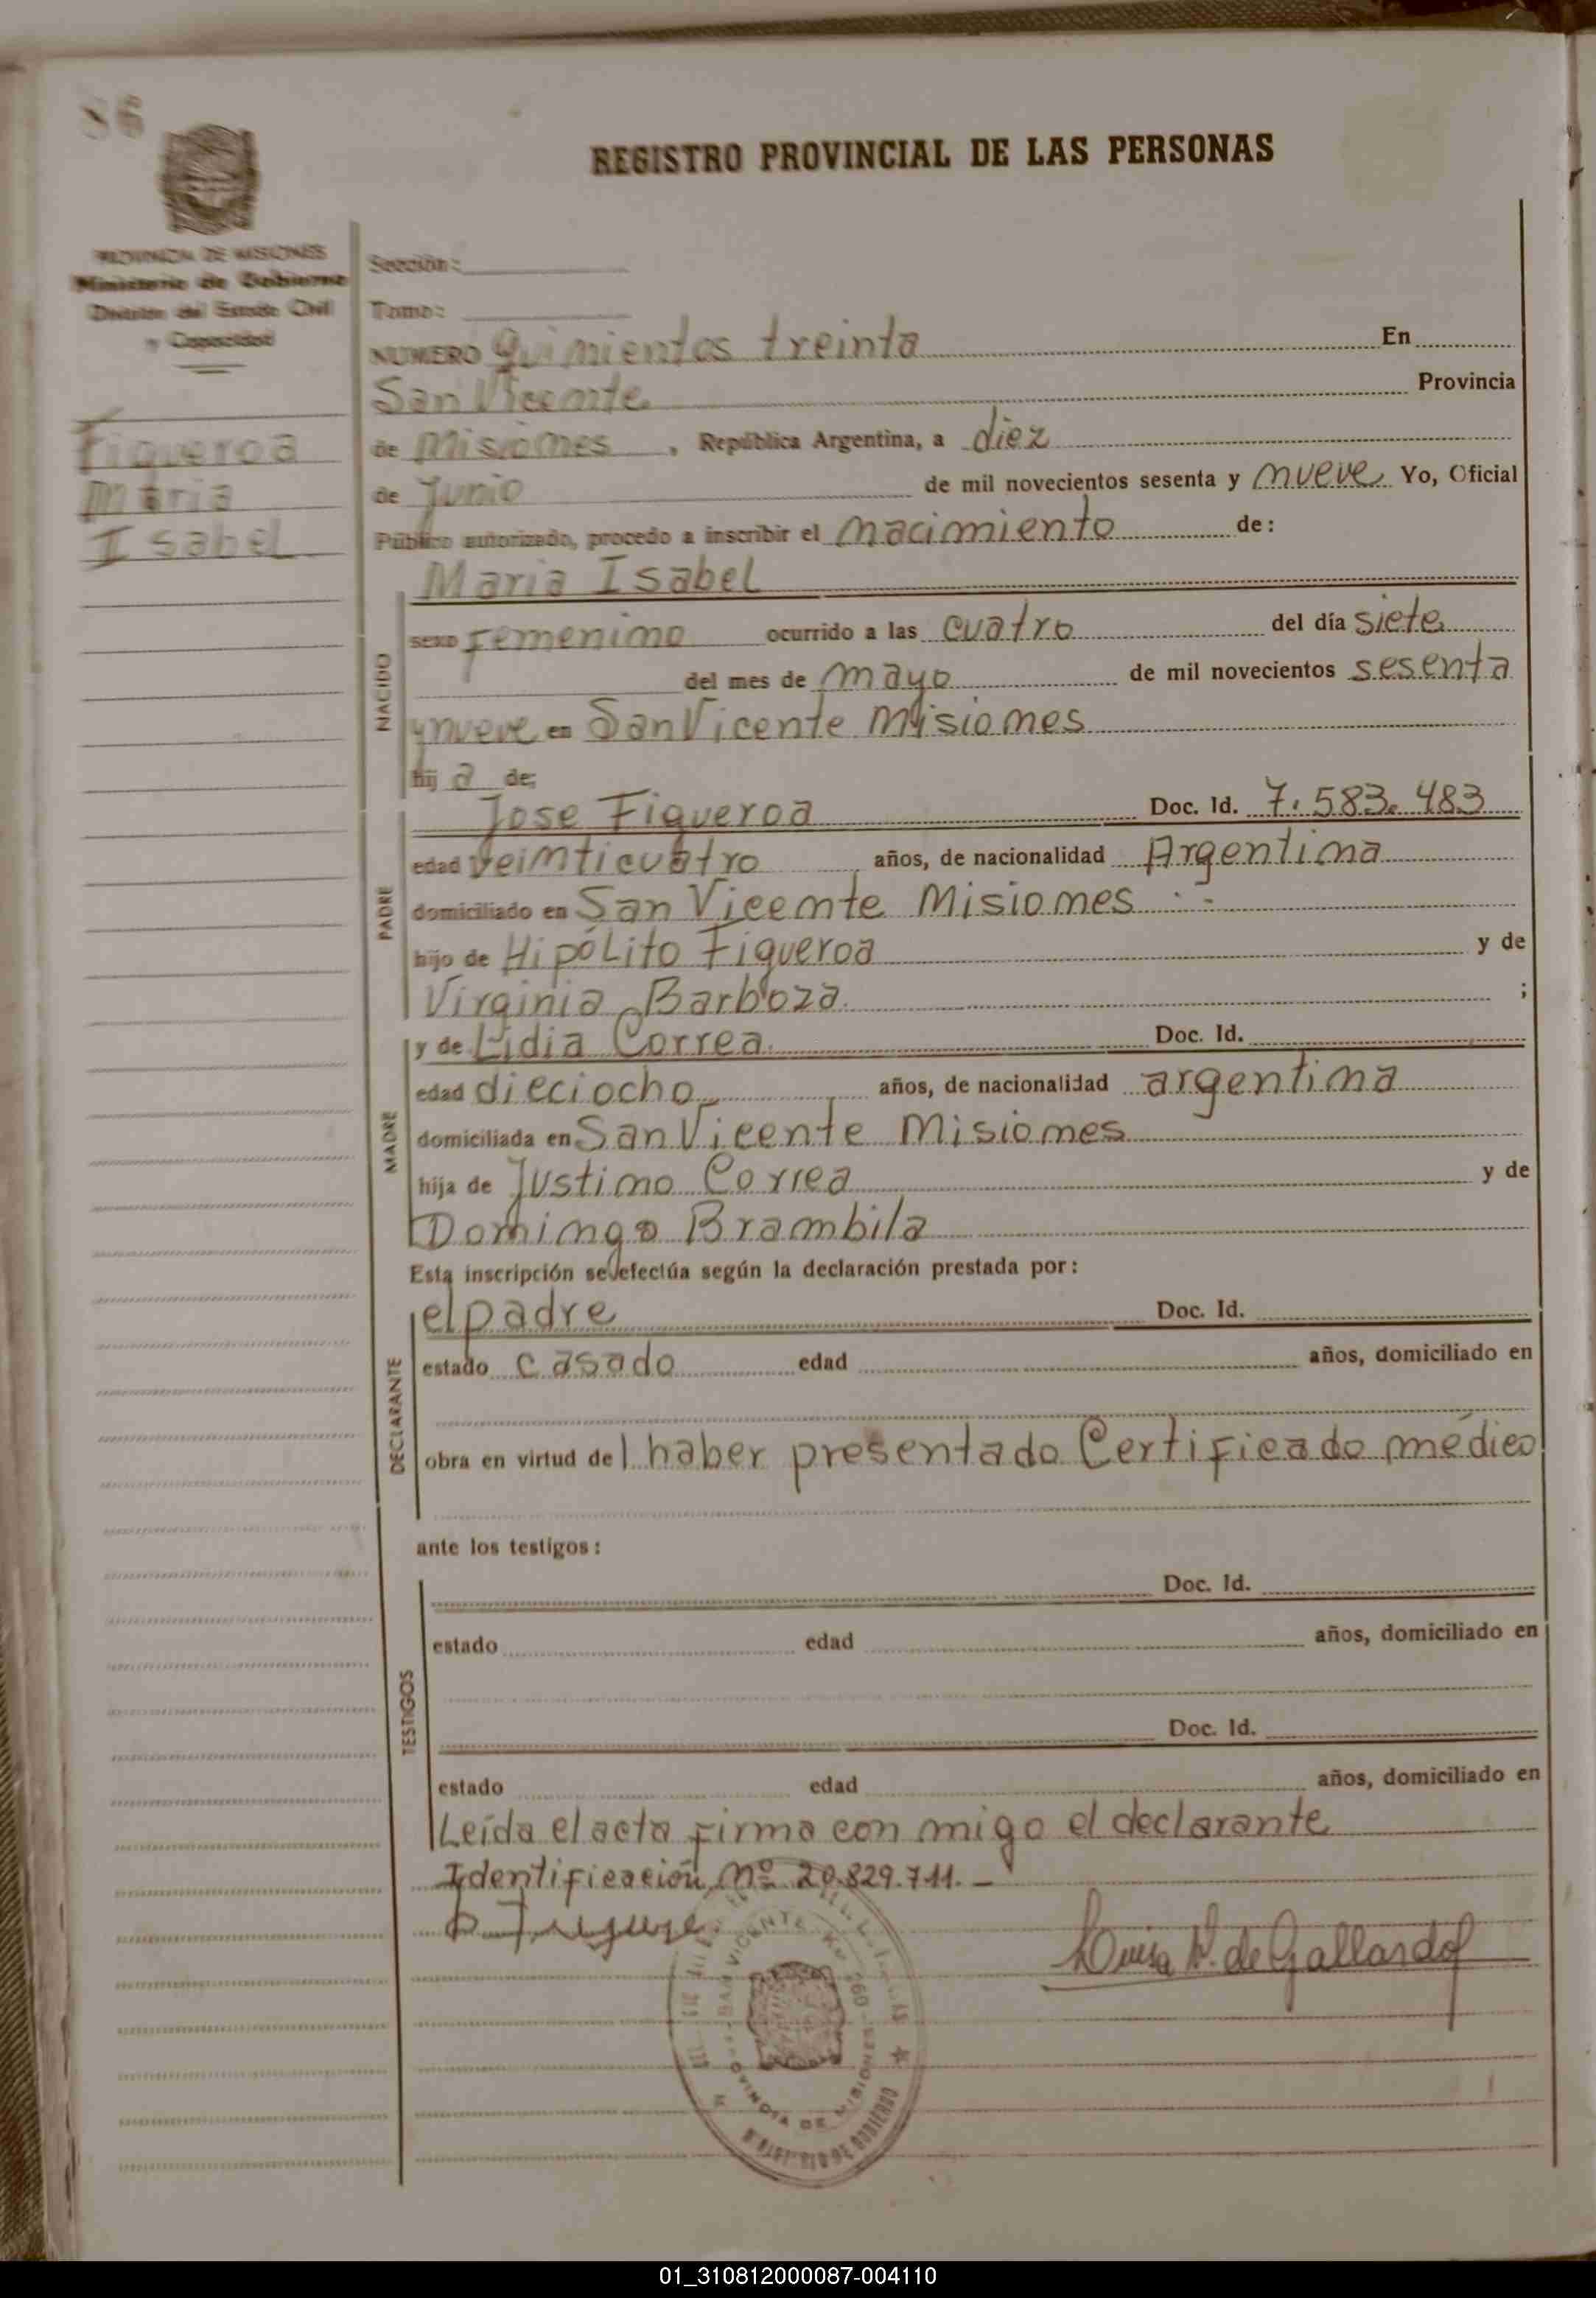 86
REGISTRO PROVINCIAL DE LAS PERSONAS
PROVINCIA DE MISIONES
Ministerio de Gobierno
División del Estado Civil
y Capacidad
Figueroa
Maria
Isabel
Sección:
Tomo:
NUMERO Quinientos treinta En
San Vicente Provincia
de Misiones, República Argentina, a diez
de Junio de mil novecientos sesenta y nueve Yo, Oficial
Público autorizado, procedo a inscribir el nacimiento de:
Maria Isabel
NACIDO
sexo Femenino ocurrido a las cuatro del día siete
del mes de mayo de mil novecientos sesenta
y nueve en San Vicente Misiones
hij a de:
PADRE
Jose Figueroa Doc. Id. 7.583.483
edad veinticuatro años, de nacionalidad Argentina
domiciliado en San Vicente Misiones
hijo de Hipólito Figueroa y de
Virginia Barboza ;
MADRE
y de Lidia Correa Doc. Id.
edad dieciocho años, de nacionalidad argentina
domiciliada en San Vicente Misiones
hija de Justino Correa y de
Dominga Brambila
Esta inscripción se efectúa según la declaración prestada por:
DECLARANTE
el padre Doc. Id.
estado casado edad años, domiciliado en
obra en virtud de haber presentado Certificado médico
ante los testigos:
TESTIGOS
Doc. Id.
estado edad años, domiciliado en
Doc. Id.
estado edad años, domiciliado en
Leída el acta firma con migo el declarante
Identificación Nº 20.829.711.-
Luisa de Gallardo
SAN VICENTE
PROVINCIA DE MISIONES
MINISTERIO DE GOBIERNO
01_310812000087-004110